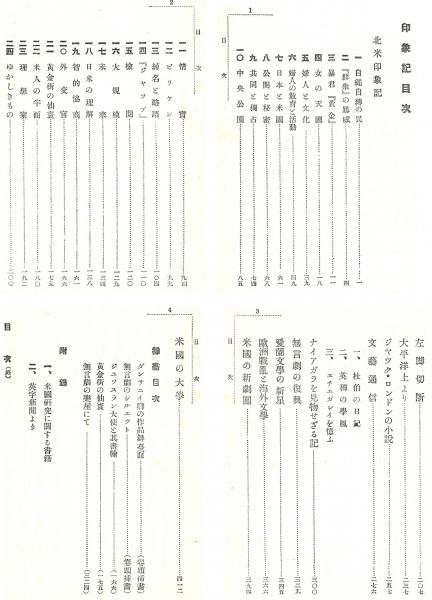 1
目次
印象記目次
北米印象記
一 自繩自縛の民 一
二 『群衆』の暴威 四
三 暴君『黃金』 一一
四 女の天國 一八
五 婦人と文化 三九
六 婦人の敎育と活動 四九
七 日本と米國 六一
八 公開と秘密 六八
九 共同と獨占 七六
一〇 中央公園 八五
2
目次
一一 情實 九四
一二 ビリケン 九九
一三 綽名と略語
一四 『ジャップ』
一五 檢閱 一二〇
一六 大規模 一二九
一七 未亮 一三四
一八 日米の理解 一三八
一九 智的協商 一四六
二〇 外交官 一六一
二一 黃金街の仙寰 一六六
二二 米人の半面 一八〇
二三 理想家 一九二
二四 ゆかしきもの 二〇〇
3
目次
左脚切斷 二〇七
太平洋上より 二三七
ジャック・ロンドンの小說 二五七
文藝通信 二七六
一、杜伯の日記
二、英稱の學風
三、エチェガレイを憶ふ
ナイアガラを見物せざる記 三〇〇
無言劇の復興 三二五
愛蘭文學の新星 三四五
歐洲戰亂と海外文學 三六六
米國の新劇團 三九四
4
目次
米國の大學 四一二
插畵目次
ダンサニイ卿の作品舞臺面 (卷頭插畫)
無言劇のシルエット (卷頭插畫)
ジュッスラン大使と其書翰 (一六六)
黃金街の仙寰 (一七五)
無言劇の樂屋にて (三二四)
附錄
一、米國硏究に關する書籍
二、英字新聞より
目次(終)